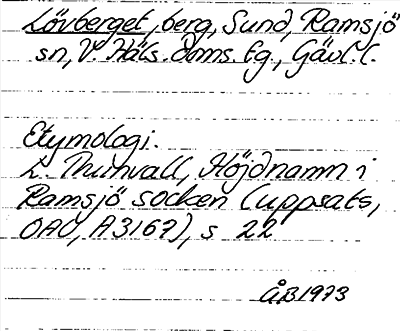 Lövberget, berg, Sund, Ramsjö
sn, V. Häls. doms. tg., Gävl. l.
Etymologi.
L. Thunvall, Höjdnamn i
Ramsjö socken (uppsats,
OAU, A3167), s 22
ÅB1973